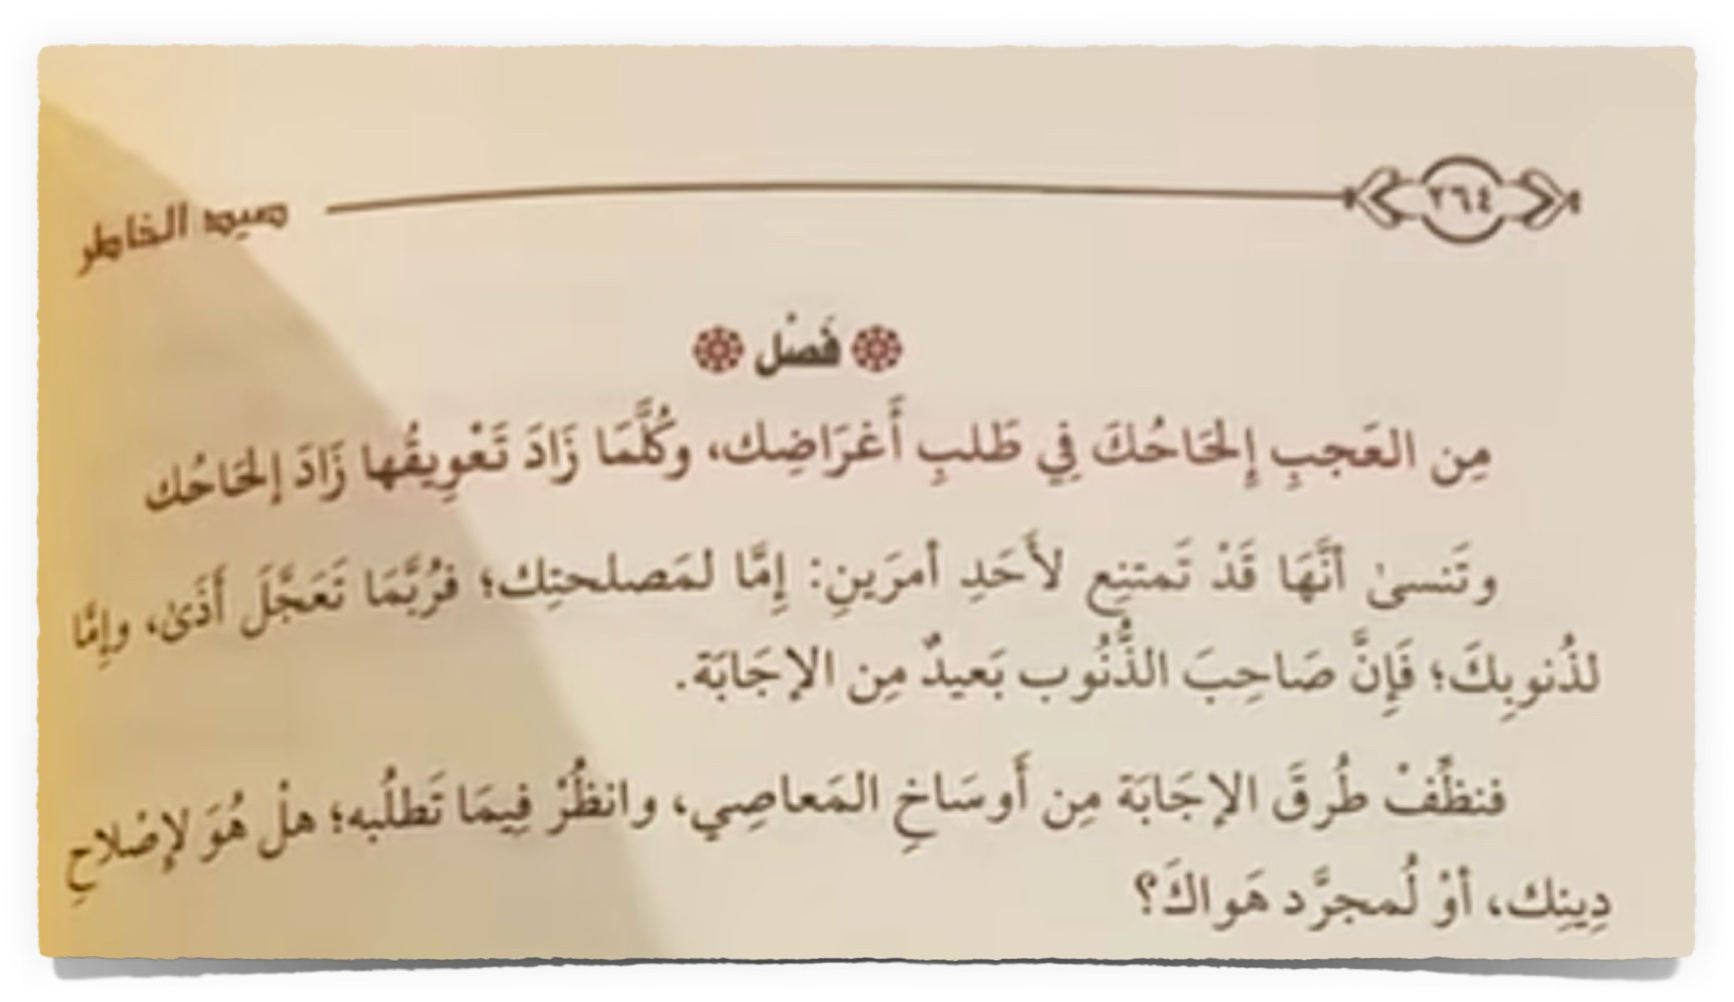 ٢٦٤ صيد الخاطر
فَصْل
مِن العَجبِ إِلحَاحُكَ فِي طَلبِ أَغرَاضِك، وكُلَّمَا زَادَ تَعْوِيقُها زَادَ إلحَاحُك
وتَنسىٰ أنَّهَا قَدْ تَمتنِع لأَحَدِ أمرَينِ: إِمَّا لمَصلحتِك؛ فرُبَّمَا تَعَجَّلَ أَذَىٰ، وإِمَّا
لذُنوبِكَ؛ فَإِنَّ صَاحِبَ الذُّنُوب بَعيدٌ مِن الإجَابَة.
فنظِّفْ طُرقَ الإجَابَة مِن أَوسَاخِ المَعاصِي، وانظُرْ فِيمَا تَطلُبه؛ هلْ هُوَ لإِصْلاحِ
دِينِك، أوْ لُمجرَّد هَواكَ؟